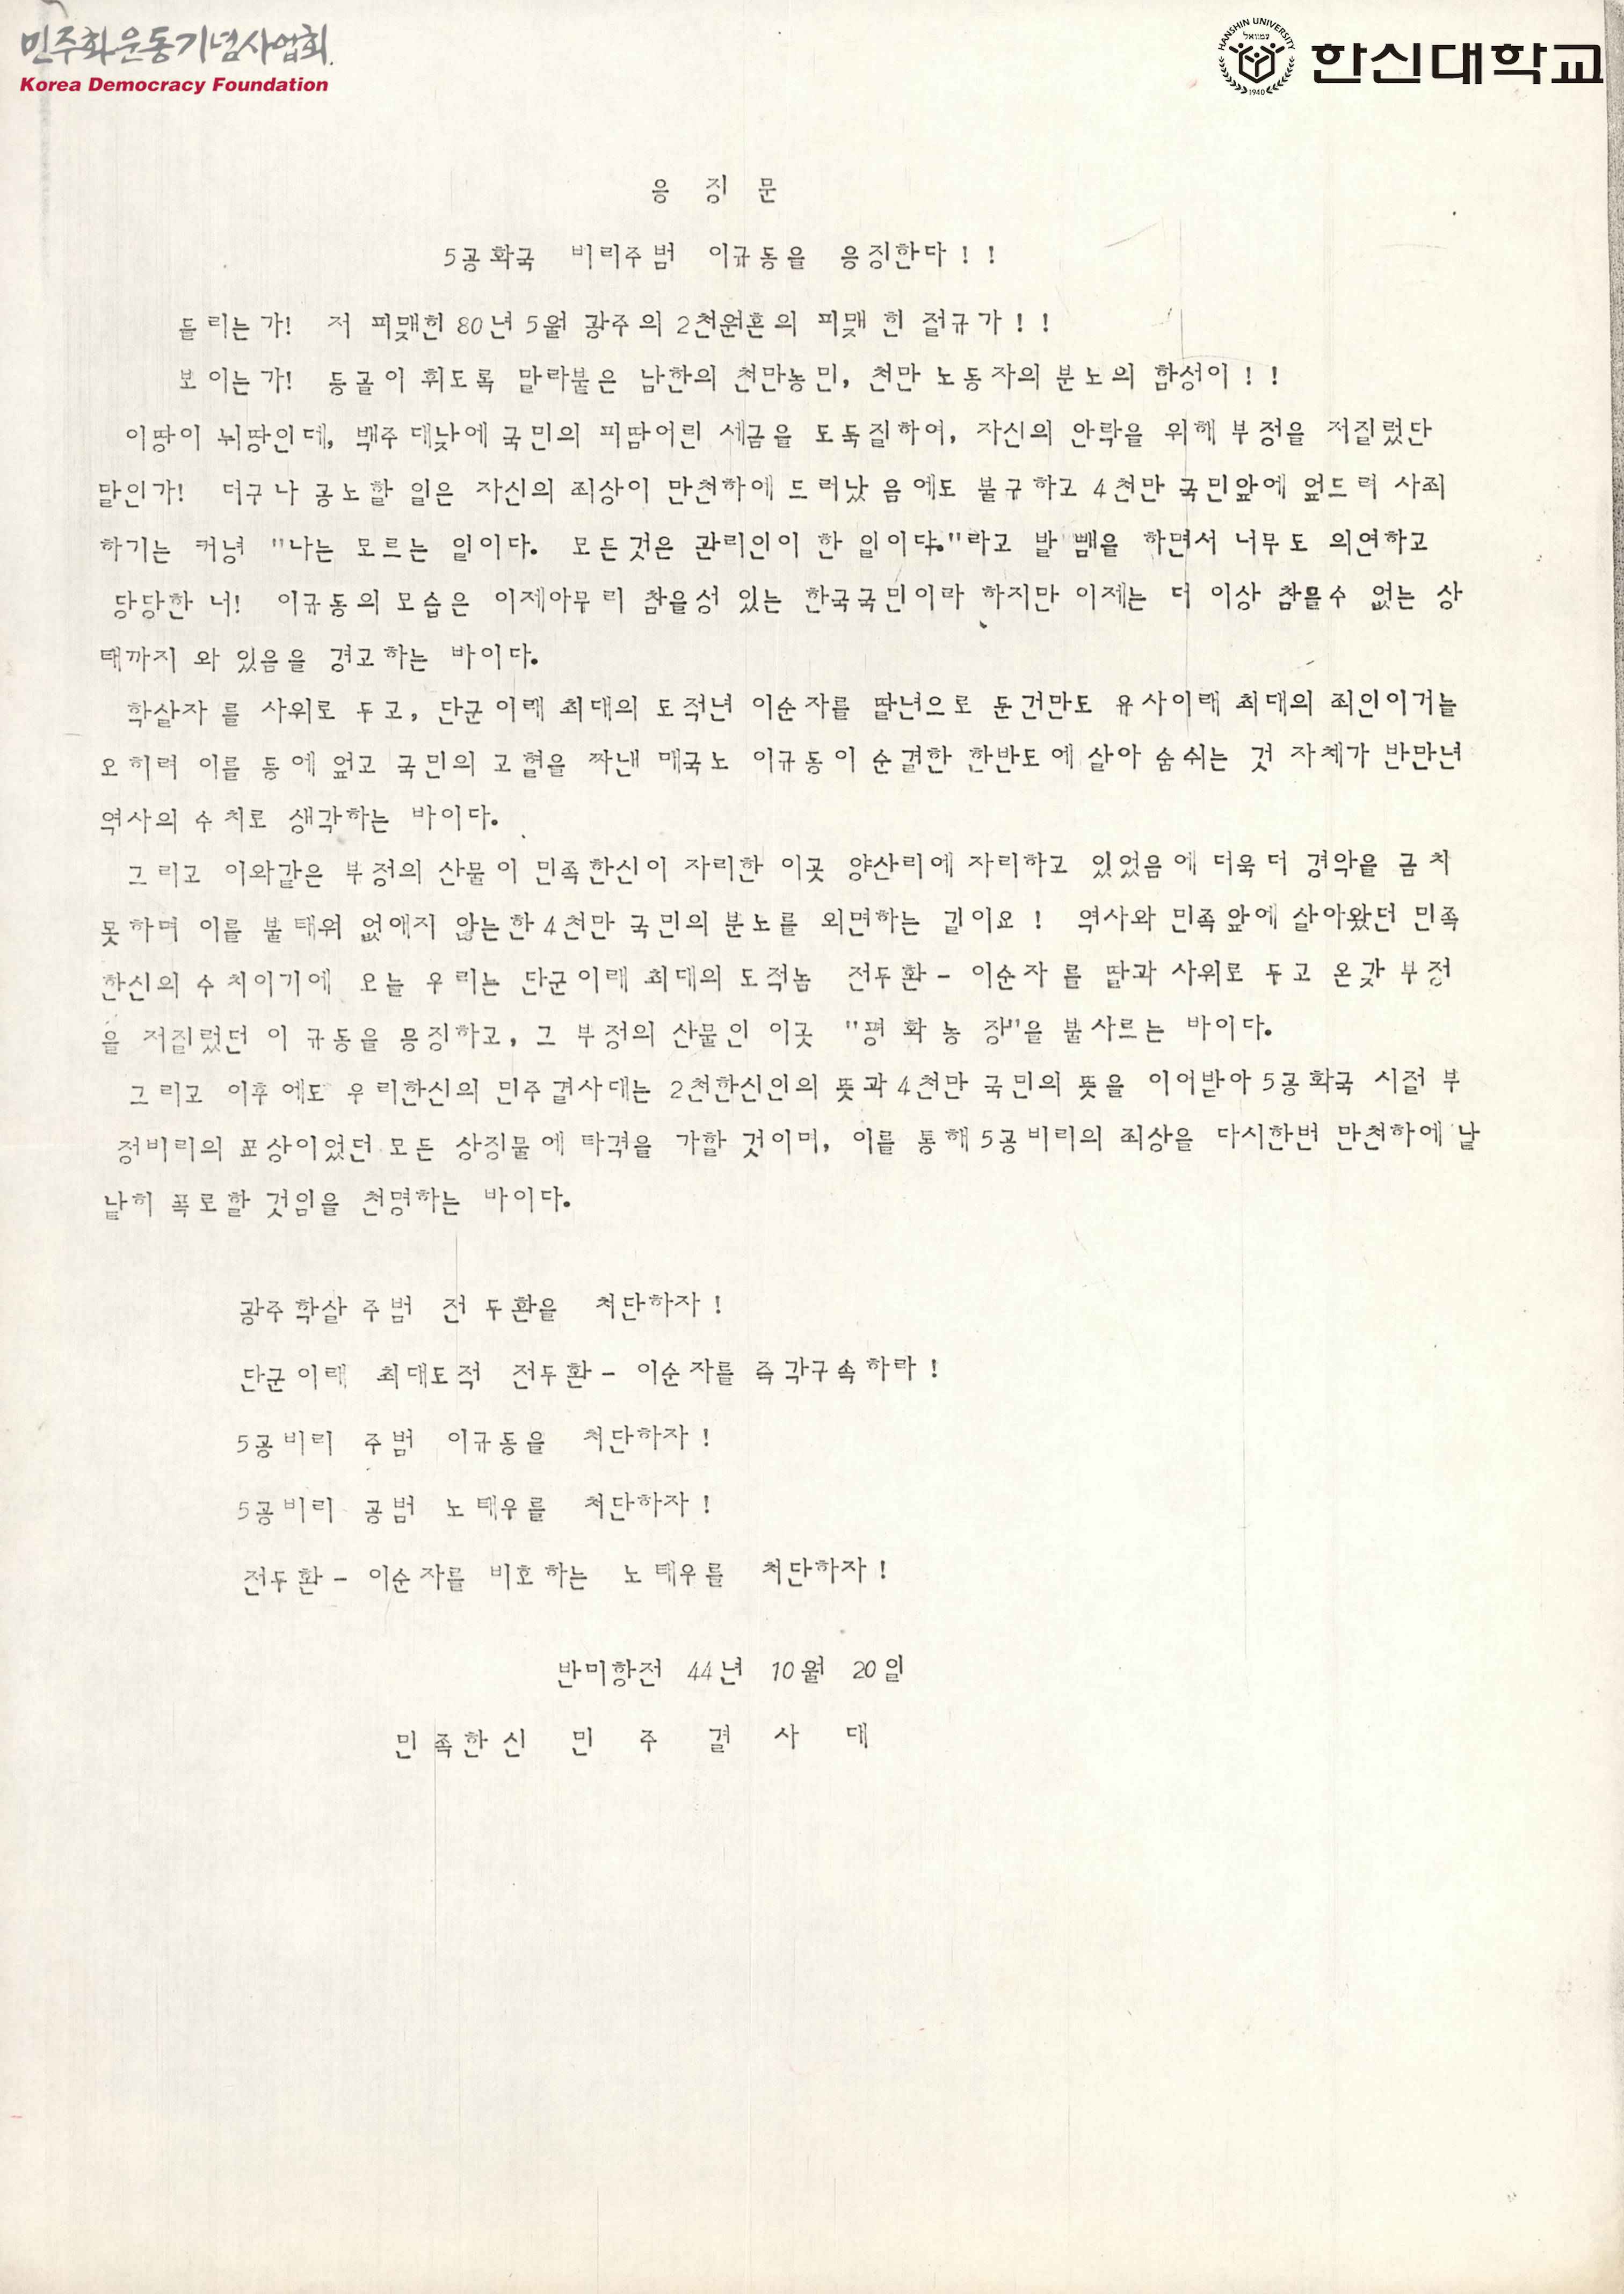 민주화운동기념사업회
Korea Democracy Foundation
HANSHIN UNIVERSITY
1940
한신대학교
응 징 문
5공화국 비리주범 이규동을 응징한다!!
들리는가! 저 피맺힌 80년 5월 광주의 2천원혼의 피맺힌 절규가!!
보이는가! 등골이 휘도록 말라붙은 남한의 천만농민, 천만 노동자의 분노의 함성이!!
이땅이 뉘땅인데, 백주 대낮에 국민의 피땀어린 세금을 도둑질하여, 자신의 안락을 위해 부정을 저질렀단
말인가! 더구나 공노할 일은 자신의 죄상이 만천하에 드러났음에도 불구하고 4천만 국민앞에 엎드려 사죄
하기는 커녕 "나는 모르는 일이다. 모든것은 관리인이 한 일이다."라고 발뺌을 하면서 너무도 의연하고
당당한 너! 이규동의 모습은 이제아무리 참을성 있는 한국국민이라 하지만 이제는 더 이상 참을수 없는 상
태까지 와 있음을 경고하는 바이다.
학살자를 사위로 두고, 단군이래 최대의 도적년 이순자를 딸년으로 둔건만도 유사이래 최대의 죄인이거늘
오히려 이를 등에 엎고 국민의 고혈을 짜낸 매국노 이규동이 순결한 한반도에 살아 숨쉬는 것 자체가 반만년
역사의 수치로 생각하는 바이다.
그리고 이와같은 부정의 산물이 민족한신이 자리한 이곳 양산리에 자리하고 있었음에 더욱더 경악을 금치
못하며 이를 불태워 없애지 않는한 4천만 국민의 분노를 외면하는 길이요! 역사와 민족앞에 살아왔던 민족
한신의 수치이기에 오늘 우리는 단군이래 최대의 도적놈 전두환- 이순자를 딸과 사위로 두고 온갖 부정
을 저질렀던 이규동을 응징하고, 그 부정의 산물인 이곳 "평화농장"을 불사르는 바이다.
그리고 이후에도 우리한신의 민주결사대는 2천한신인의 뜻과 4천만 국민의 뜻을 이어받아 5공화국 시절 부
정비리의 표상이었던 모든 상징물에 타격을 가할 것이며, 이를 통해 5공비리의 죄상을 다시한번 만천하에 낱
낱히 폭로할 것임을 천명하는 바이다.
광주학살 주범 전두환을 처단하자!
단군이래 최대도적 전두환- 이순자를 즉각구속하라!
5공비리 주범 이규동을 처단하자!
5공비리 공범 노태우를 처단하자!
전두환- 이순자를 비호하는 노태우를 처단하자!
반미항전 44년 10월 20일
민족한신 민 주 결 사 대